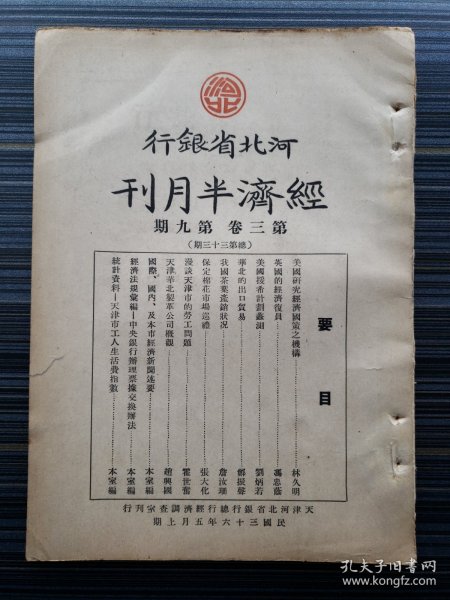 河北省銀行
經濟半月刊
第三卷 第九期
（總第三十三期）
要目
美國研究經濟國策之機構 林久明
英國的經濟復員 馮忠蔭
美國援希計劃蠡測 劉炳若
華北的出口貿易 解振聲
我國茶葉產銷狀況 詹汝珊
保定棉花市場巡禮 張大化
漫談天津市的勞工問題 霍世奮
天津華北製革公司概觀 趙興國
國際、國內、及本市經濟新聞述要 本室編
經濟法規彙編—中央銀行辦理票據交換辦法 本室編
統計資料—天津市工人生活費指數 本室編
天津河北省銀行總行經濟調查室刊行
民國三十六年五月上期
孔夫子旧书网
www.kongfz.com